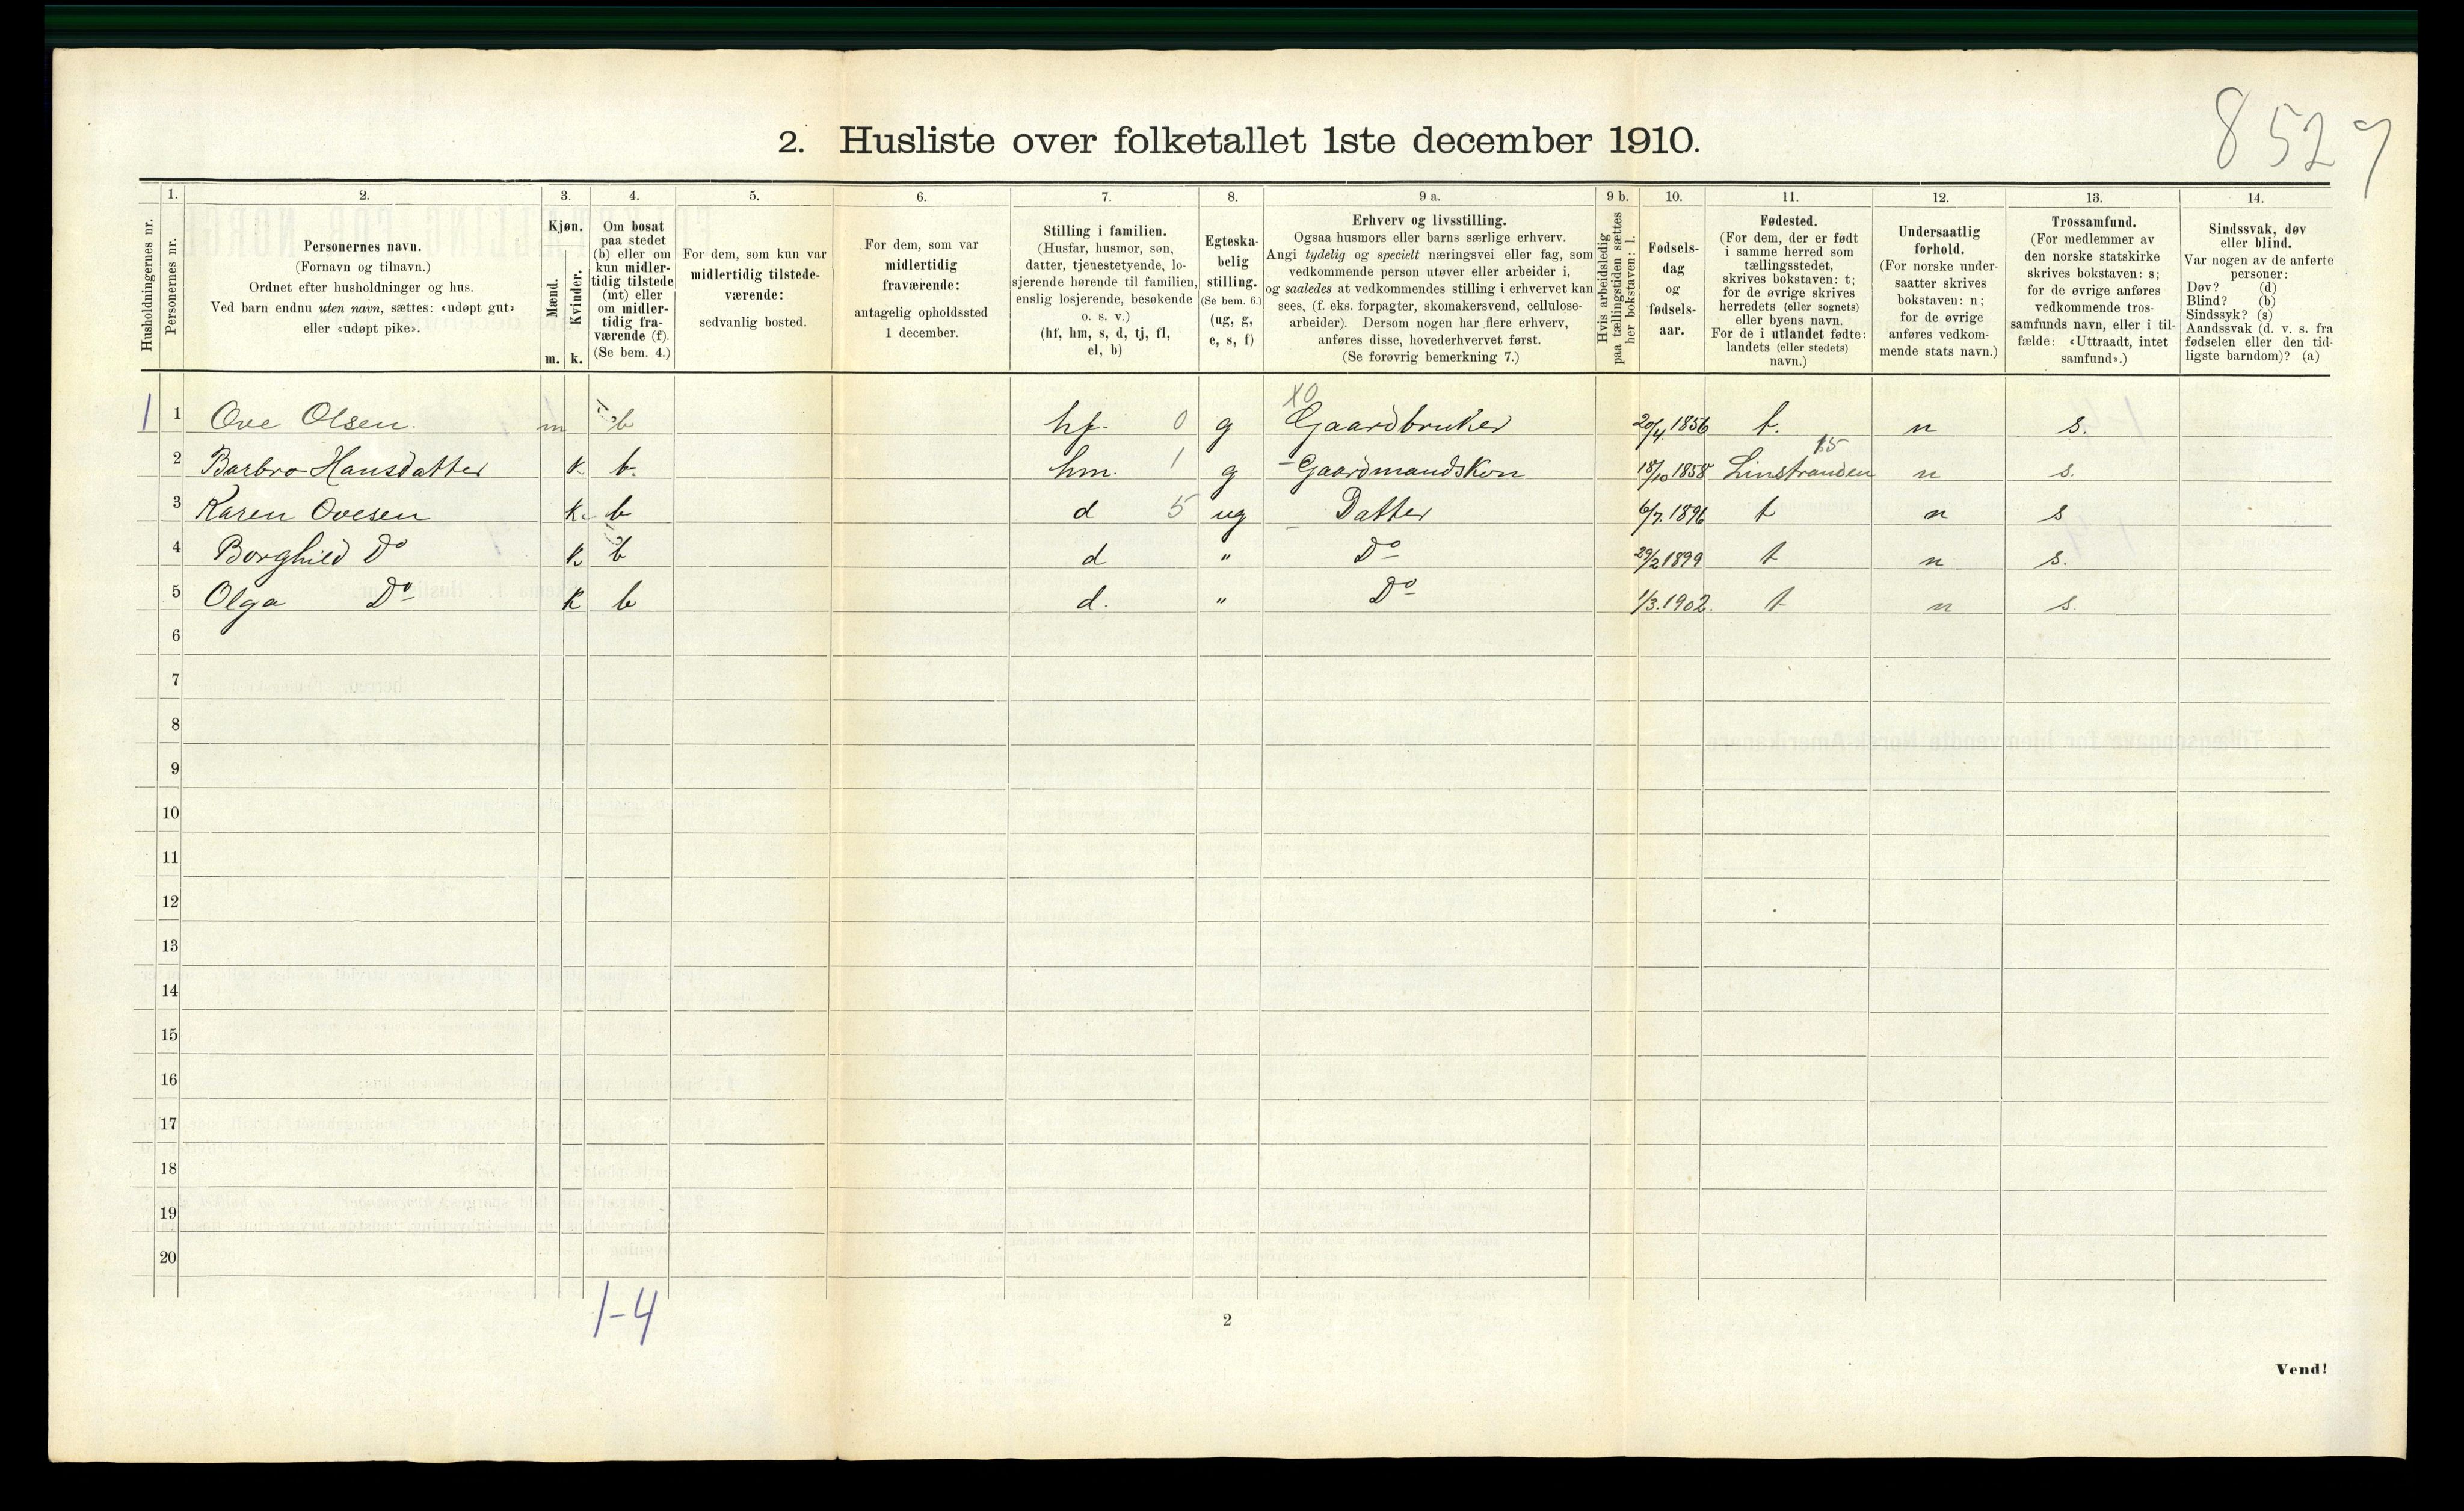 8527
2. Husliste over folketallet 1ste december 1910.
Husholdningernes nr.
1.
Personernes nr.
2.
Personernes navn.
(Fornavn og tilnavn.)
Ordnet efter husholdninger og hus.
Ved barn endnu uten navn, sættes: «udøpt gut»
eller «udøpt pike».
3.
Kjøn.
Mænd.
Kvinder.
m. k.
4.
Om bosat
paa stedet
(b) eller om
kun midler-
tidig tilstede
(mt) eller
om midler-
tidig fra-
værende (f).
(Se bem. 4.)
5.
For dem, som kun var
midlertidig tilstede-
værende:
sedvanlig bosted.
6.
For dem, som var
midlertidig
fraværende:
antagelig opholdssted
1 december.
7.
Stilling i familien.
(Husfar, husmor, søn,
datter, tjenestetyende, lo-
sjerende hørende til familien,
enslig losjerende, besøkende
o. s. v.)
(hf, hm, s, d, tj, fl,
el, b)
8.
Egteska-
belig
stilling.
(Se bem. 6.)
(ug, g,
e, s, f)
9 a.
Erhverv og livsstilling.
Ogsaa husmors eller barns særlige erhverv.
Angi tydelig og specielt næringsvei eller fag, som
vedkommende person utøver eller arbeider i,
og saaledes at vedkommendes stilling i erhvervet kan
sees, (f. eks. forpagter, skomakersvend, cellulose-
arbeider). Dersom nogen har flere erhverv,
anføres disse, hovederhvervet først.
(Se forøvrig bemerkning 7.)
9 b.
Hvis arbeidsledig
paa tællingstiden sættes
her bokstaven: l.
10.
Fødsels-
dag
og
fødsels-
aar.
11.
Fødested.
(For dem, der er født
i samme herred som
tællingsstedet,
skrives bokstaven: t;
for de øvrige skrives
herredets (eller sognets)
eller byens navn.
For de i utlandet fødte:
landets (eller stedets)
navn.)
12.
Undersaatlig
forhold.
(For norske under-
saatter skrives
bokstaven: n;
for de øvrige
anføres vedkom-
mende stats navn.)
13.
Trossamfund.
(For medlemmer av
den norske statskirke
skrives bokstaven: s;
for de øvrige anføres
vedkommende tros-
samfunds navn, eller i til-
fælde: «Uttraadt, intet
samfund».)
14.
Sindssvak, døv
eller blind.
Var nogen av de anførte
personer:
Døv? (d)
Blind? (b)
Sindssyk? (s)
Aandssvak (d. v. s. fra
fødselen eller den tid-
ligste barndom)? (a)
X0
1 1 Ove Olsen. m b hf. 0 g Gaardbruker 20/4 1856 t. n s.
15
2 Barbro Hansdatter k b. hm. 1 g - Gaardmandskon 18/10 1858 Linstranden n s.
3 Karen Ovesen k. b d 5 ug - Datter 6/7. 1896 t n s
4 Borghild Do k b d " Do 29/2 1899 t n s.
5 Olga Do k b d. " Do 1/3. 1902. t n s.
6
7
8
9
10
11
12
13
14
15
16
17
18
19
20
1-4
2
Vend!